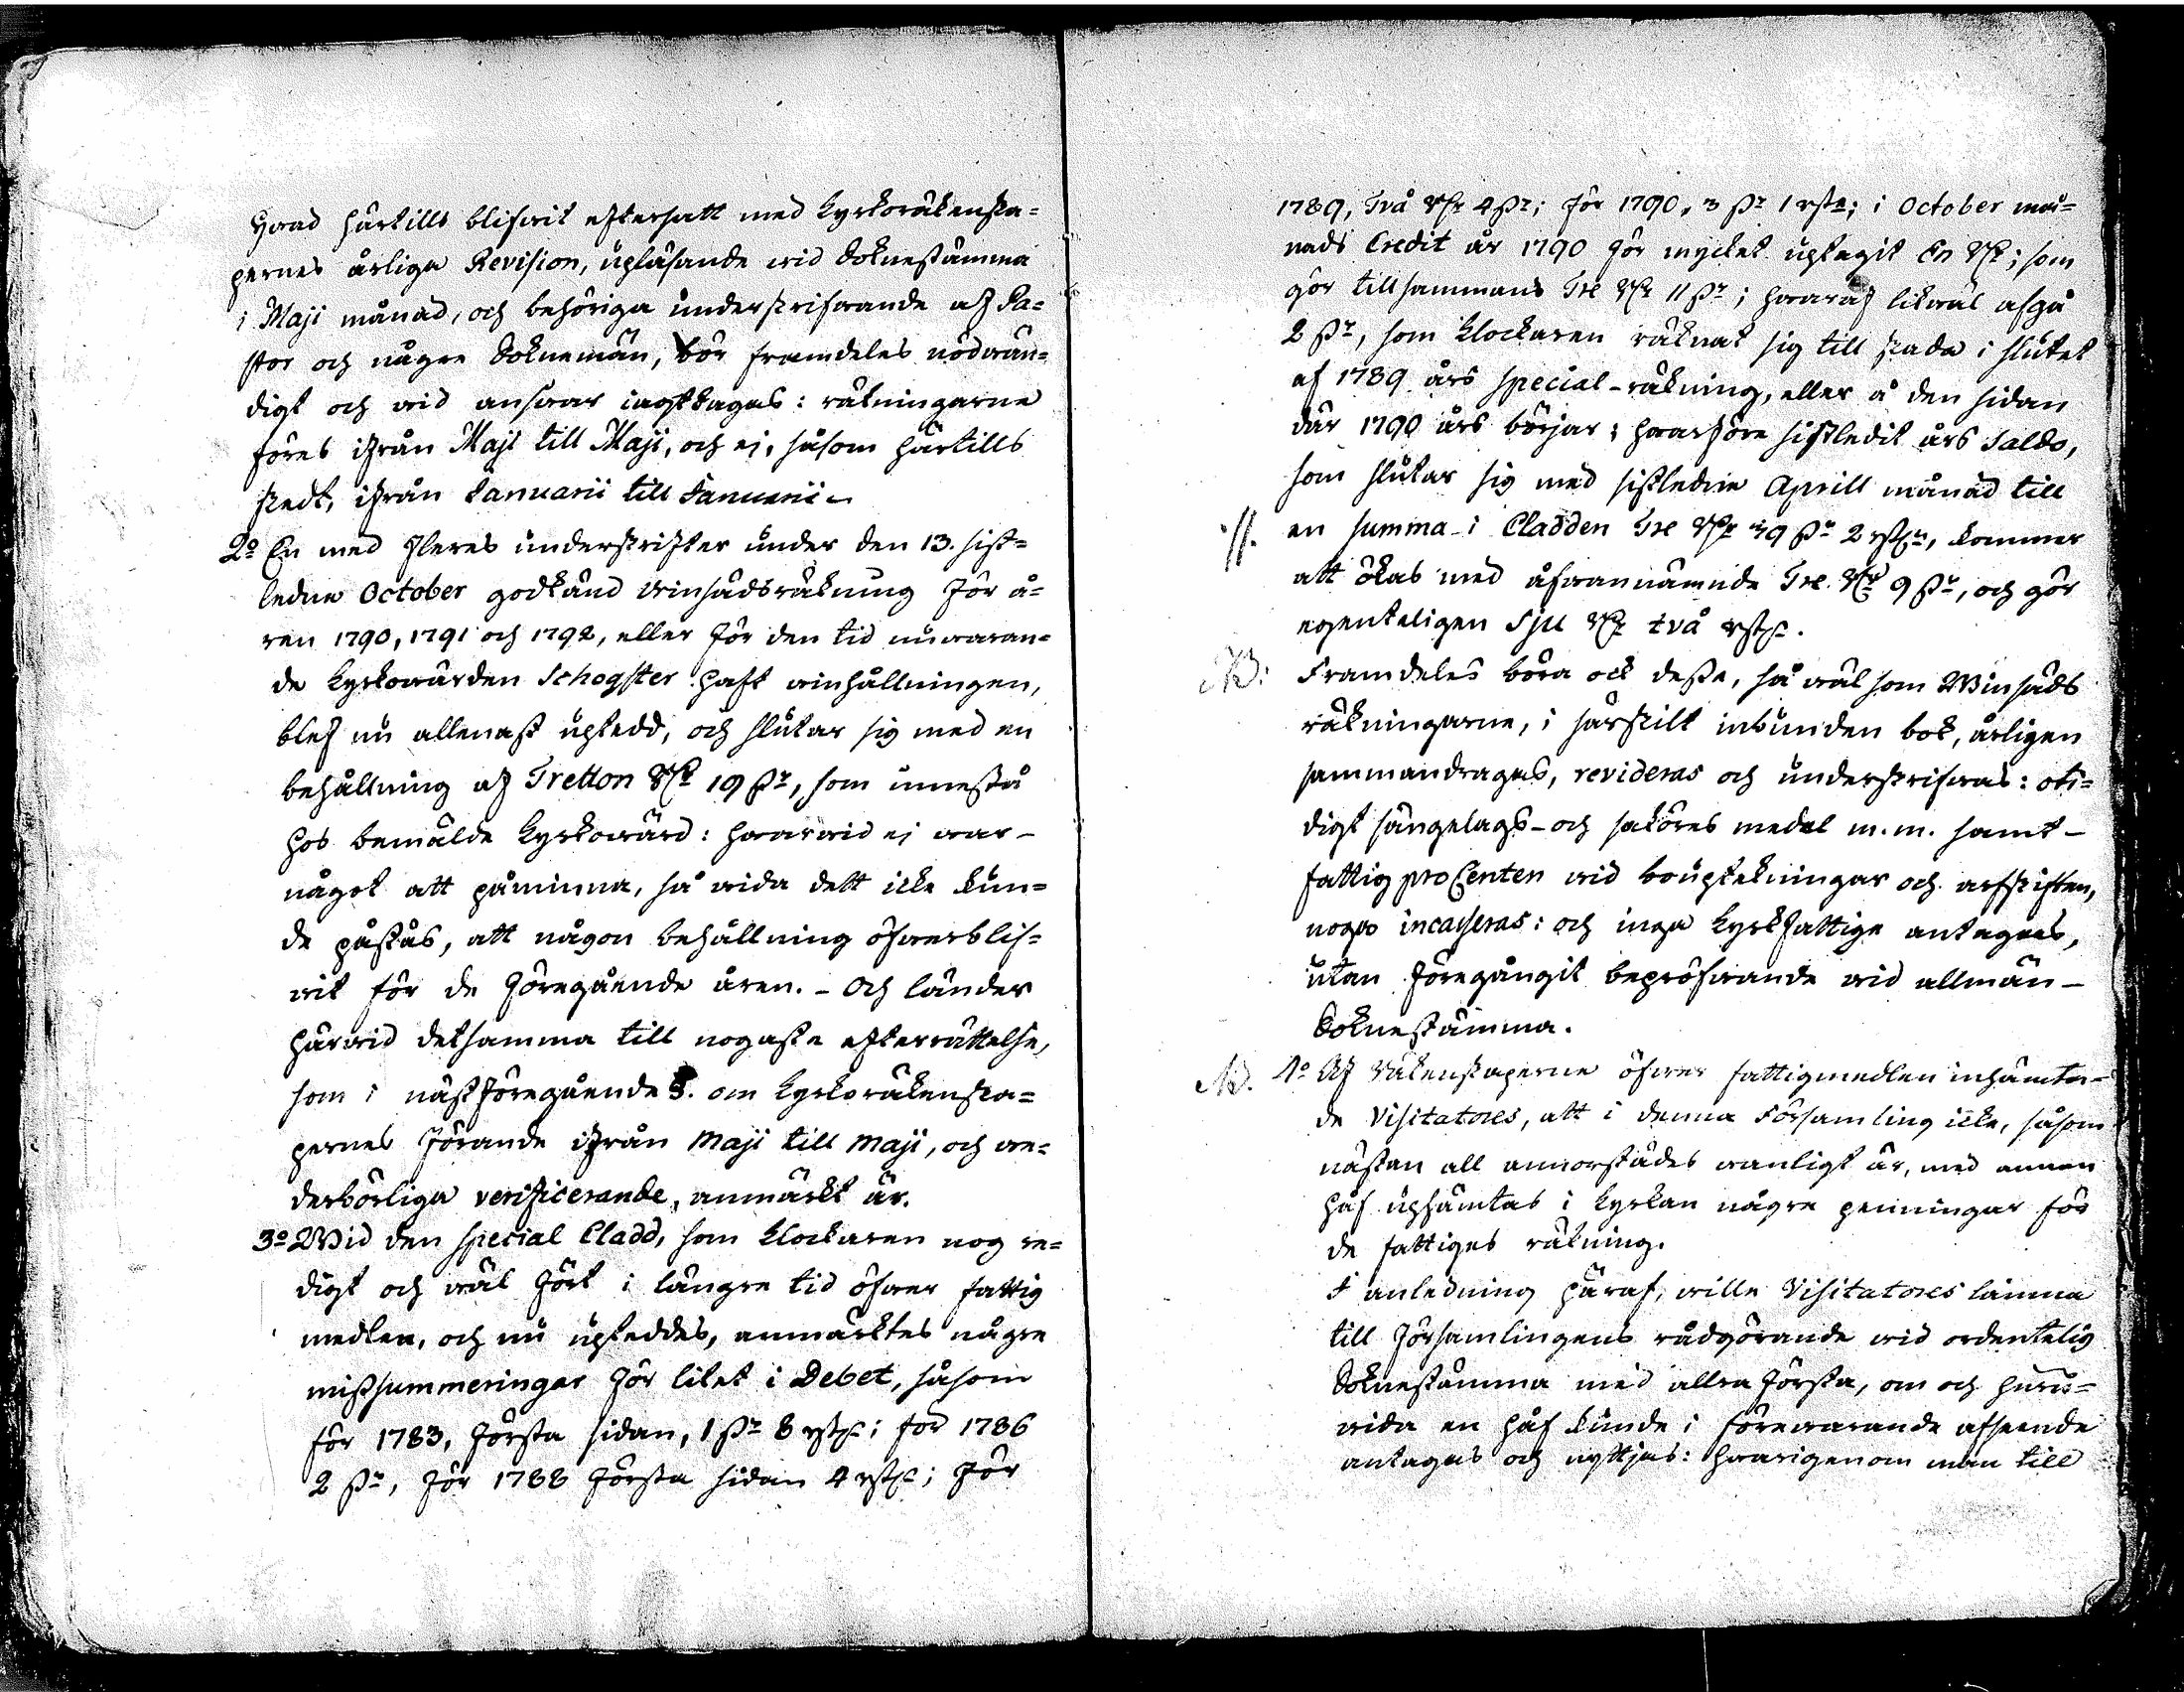 Hwad härtills blifwit eftersatt med Kyrkoräkenska=
pernes årliga Revision, upläsande wid Soknestämma
i Maji månad, och behöriga underskrifwande af Pa=
stor och någre Soknemän, bör framdeles nödwän=
digt och wid answar iagttagas: räkningarne
föres ifrån Maji till Maji, och ej, såsom härtills
skedt, ifrån Januarii till Januarii.
2:o En med fleres underskrifter under den 13. sist=
ledne October godkänd winsädsräkning för å=
ren 1790, 1791 och 1792, eller för den tid nuwaran=
de Kyrkowärden Schogster haft winhållningen,
blef nu allenast uptedd, och slutar sig med en
behållning af Tretton Rdr 19 sk:r, som innestå
hos bemälde Kyrkowärd: hwarwid ej war
något att påminna, så wida dett icke kun=
de påstås, att någon behållning öfwerblif=
wit för de föregående åren. - Och länder
härwid detsamma till nogaste efterrättelse,
som i nästföregående §. om Kyrkoräkenska=
pernes förande ifrån Maji till Maji, och we=
derbörliga verificerande, anmärkt är.
3:o Wid den special Cladd, som Klockaren nog re=
digt och wäl fört i längre tid öfwer fattig
medlen, och nu upteddes, anmärktes någre
missummeringar för litet i Debet, såsom
för 1783, första sidan, 1 sk:r 8 rst:r; för 1786
2 sk:r, för 1788 första sidan 4 rst:r; för
1789, Två Rdr 4 sk:r; för 1790, 3 sk:r 1 rst:r; i October må=
nads Credit år 1790 för mycket uptagit En Rdr; som
gör tillsammans Tre Rdr 11 sk:r; hwaraf likwäl afgå
2 sk:r, som Klockaren räknat sig till skada i slutet
af 1789 års special-räkning, eller å den sidan
där 1790 års börjar; hwarföre sistledit års Saldo,
som slutar sig med sistledne Aprill månad till
en summa i Cladden Tre Rdr 39 sk:r 2 rst:r, kommer
//.
att ökas med åfwannämnde Tre Rdr 9 sk:r, och gör
egenteligen Sju Rdr två rst:r.
NB: Framdeles böra ock dessa, så wäl som Winsäds
räkningarne, i särskilt inbunden bok, årligen
sammandragas, revideras och underskrifwas: oti=
digt sängelags- och saköres medel m.m. samt
fattig pro Centen wid bouptekningar och arfskiften,
noga incasseras: och inga Kyrkfattige antagas,
utan föregångit bepröfwande wid allmän
Soknestämma.
NB. 4:o Af Räkenskaperne öfwer fattigmedlen inhämta-
de Visitatores, att i denna Församling icke, såsom
nästan all annorstädes wanligt är, med annan
håf uphämtas i Kyrkan någre penningar för
de fattiges räkning.
I anledning häraf, wille Visitatores lämna
till församlingens rådgörande wid ordentelig
Soknestämma med allra första, om och huru=
wida en håf kunde i förewarande afseende
antagas och nyttjas: hwarigenom man till